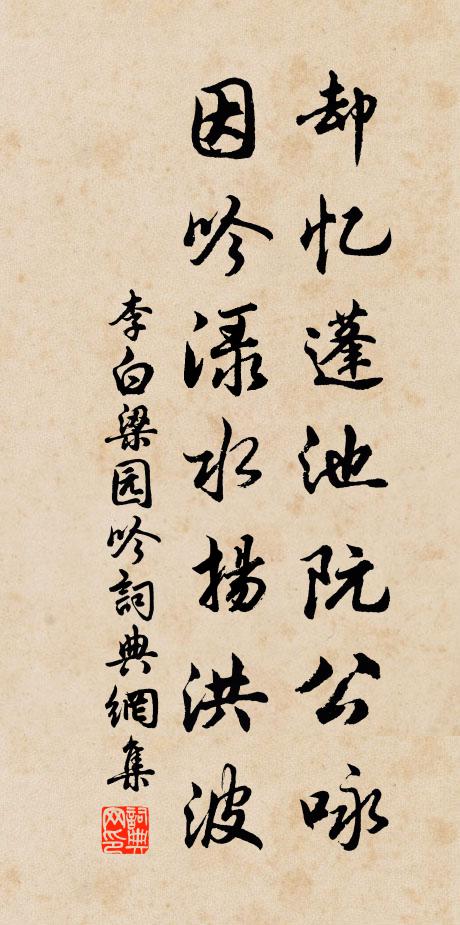 却忆蓬池阮公咏
因吟渌水揚洪波
李白梁园吟詞典網集
詞典网印